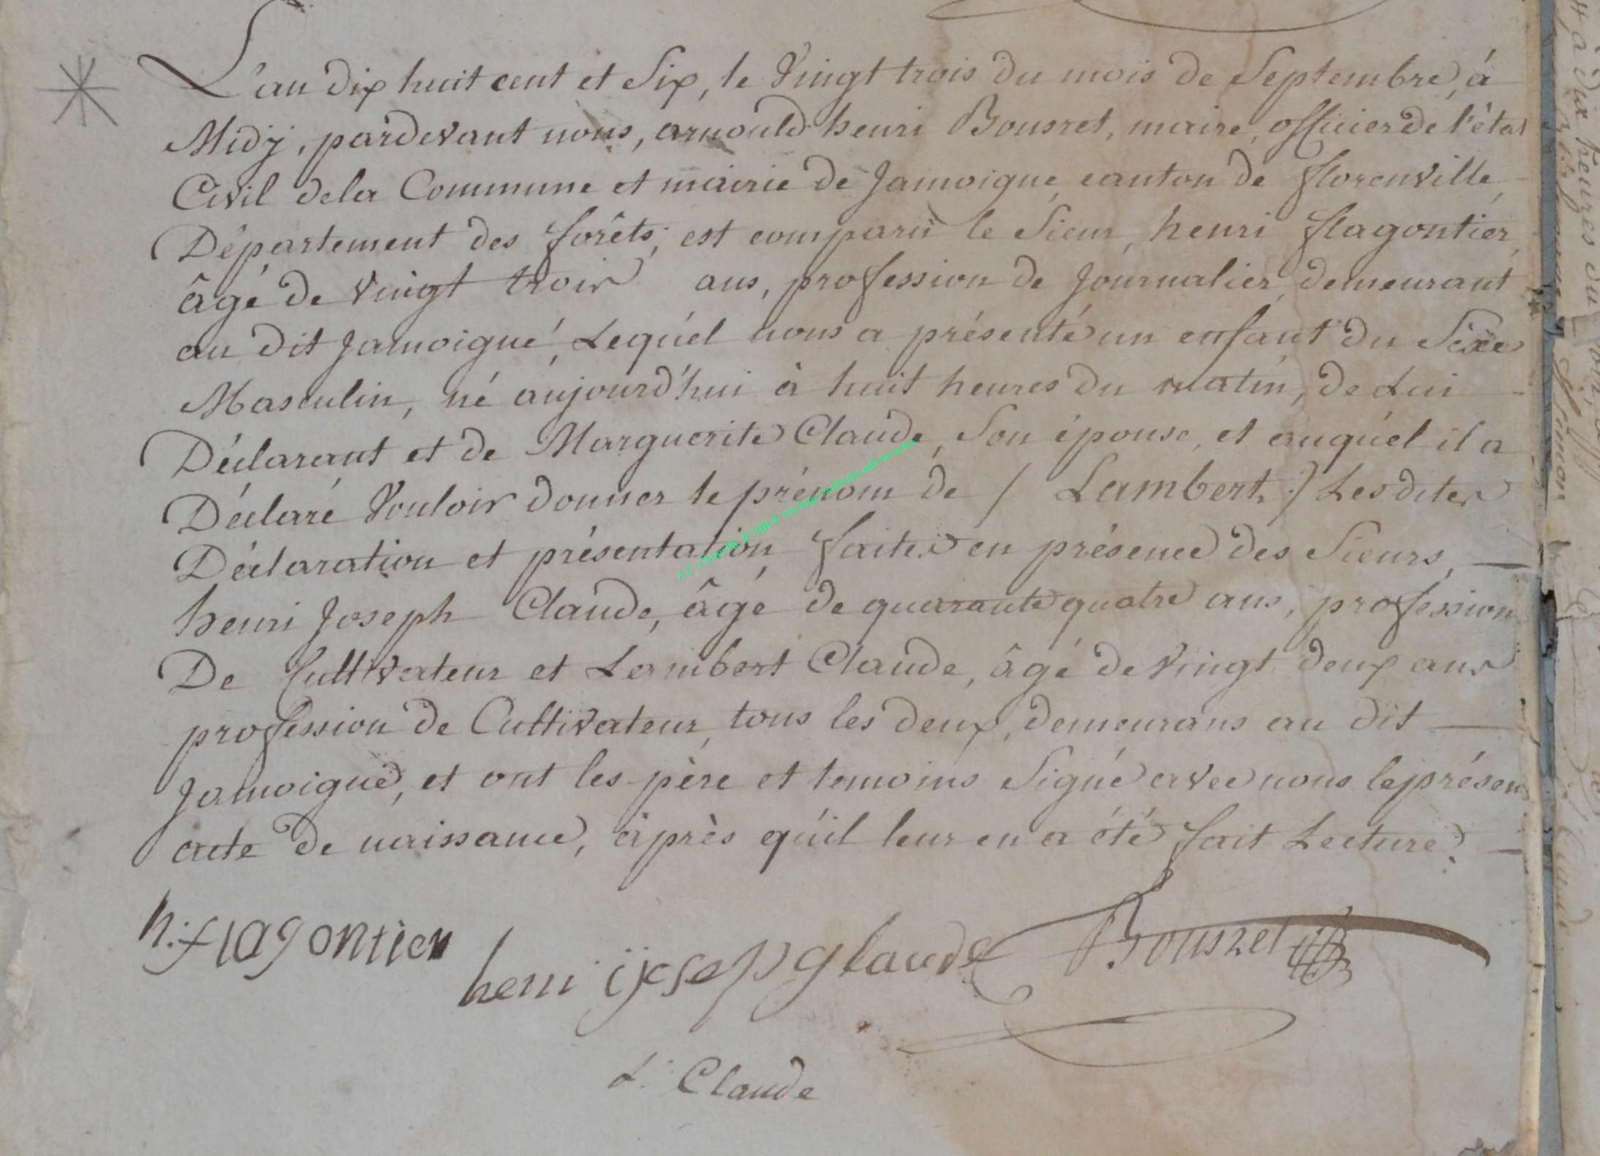 L'an dix huit cent et Six, le Vingt trois du mois de Septembre, à
Midy, pardevant nous, arnould henri Bousret, maire, officier de l'état
Civil dela Commune et mairie de Jamoigne, canton de florenville,
Département des forêts, est comparu le Sieur, henri flagontier,
âgé de vingt trois ans, profession de Journalier, demeurant
au dit Jamoigne, Lequel nous a présenté un enfant du Sexe
Masculin, né aujourd'hui à huit heures du matin, de Lui
Déclarant et de Marguerite Claude, Son épouse, et auquel il a
Déclaré Vouloir donner le prénom de / Lambert. / Lesdites
Déclaration et présentation faites en présence des Sieurs,
henri Joseph Claude, âgé de quarante quatre ans, profession
De Cultivateur et Lambert Claude, âgé de Vingt deux ans
profession de Cultivateur, tous les deux, demeurans au dit
Jamoigne, et ont les père et temoins Signé avec nous le présen
acte de naissance, après qu'il leur en a été fait Lecture.
h. flagontier
henri ijosep glaude
Bousret
L. Claude